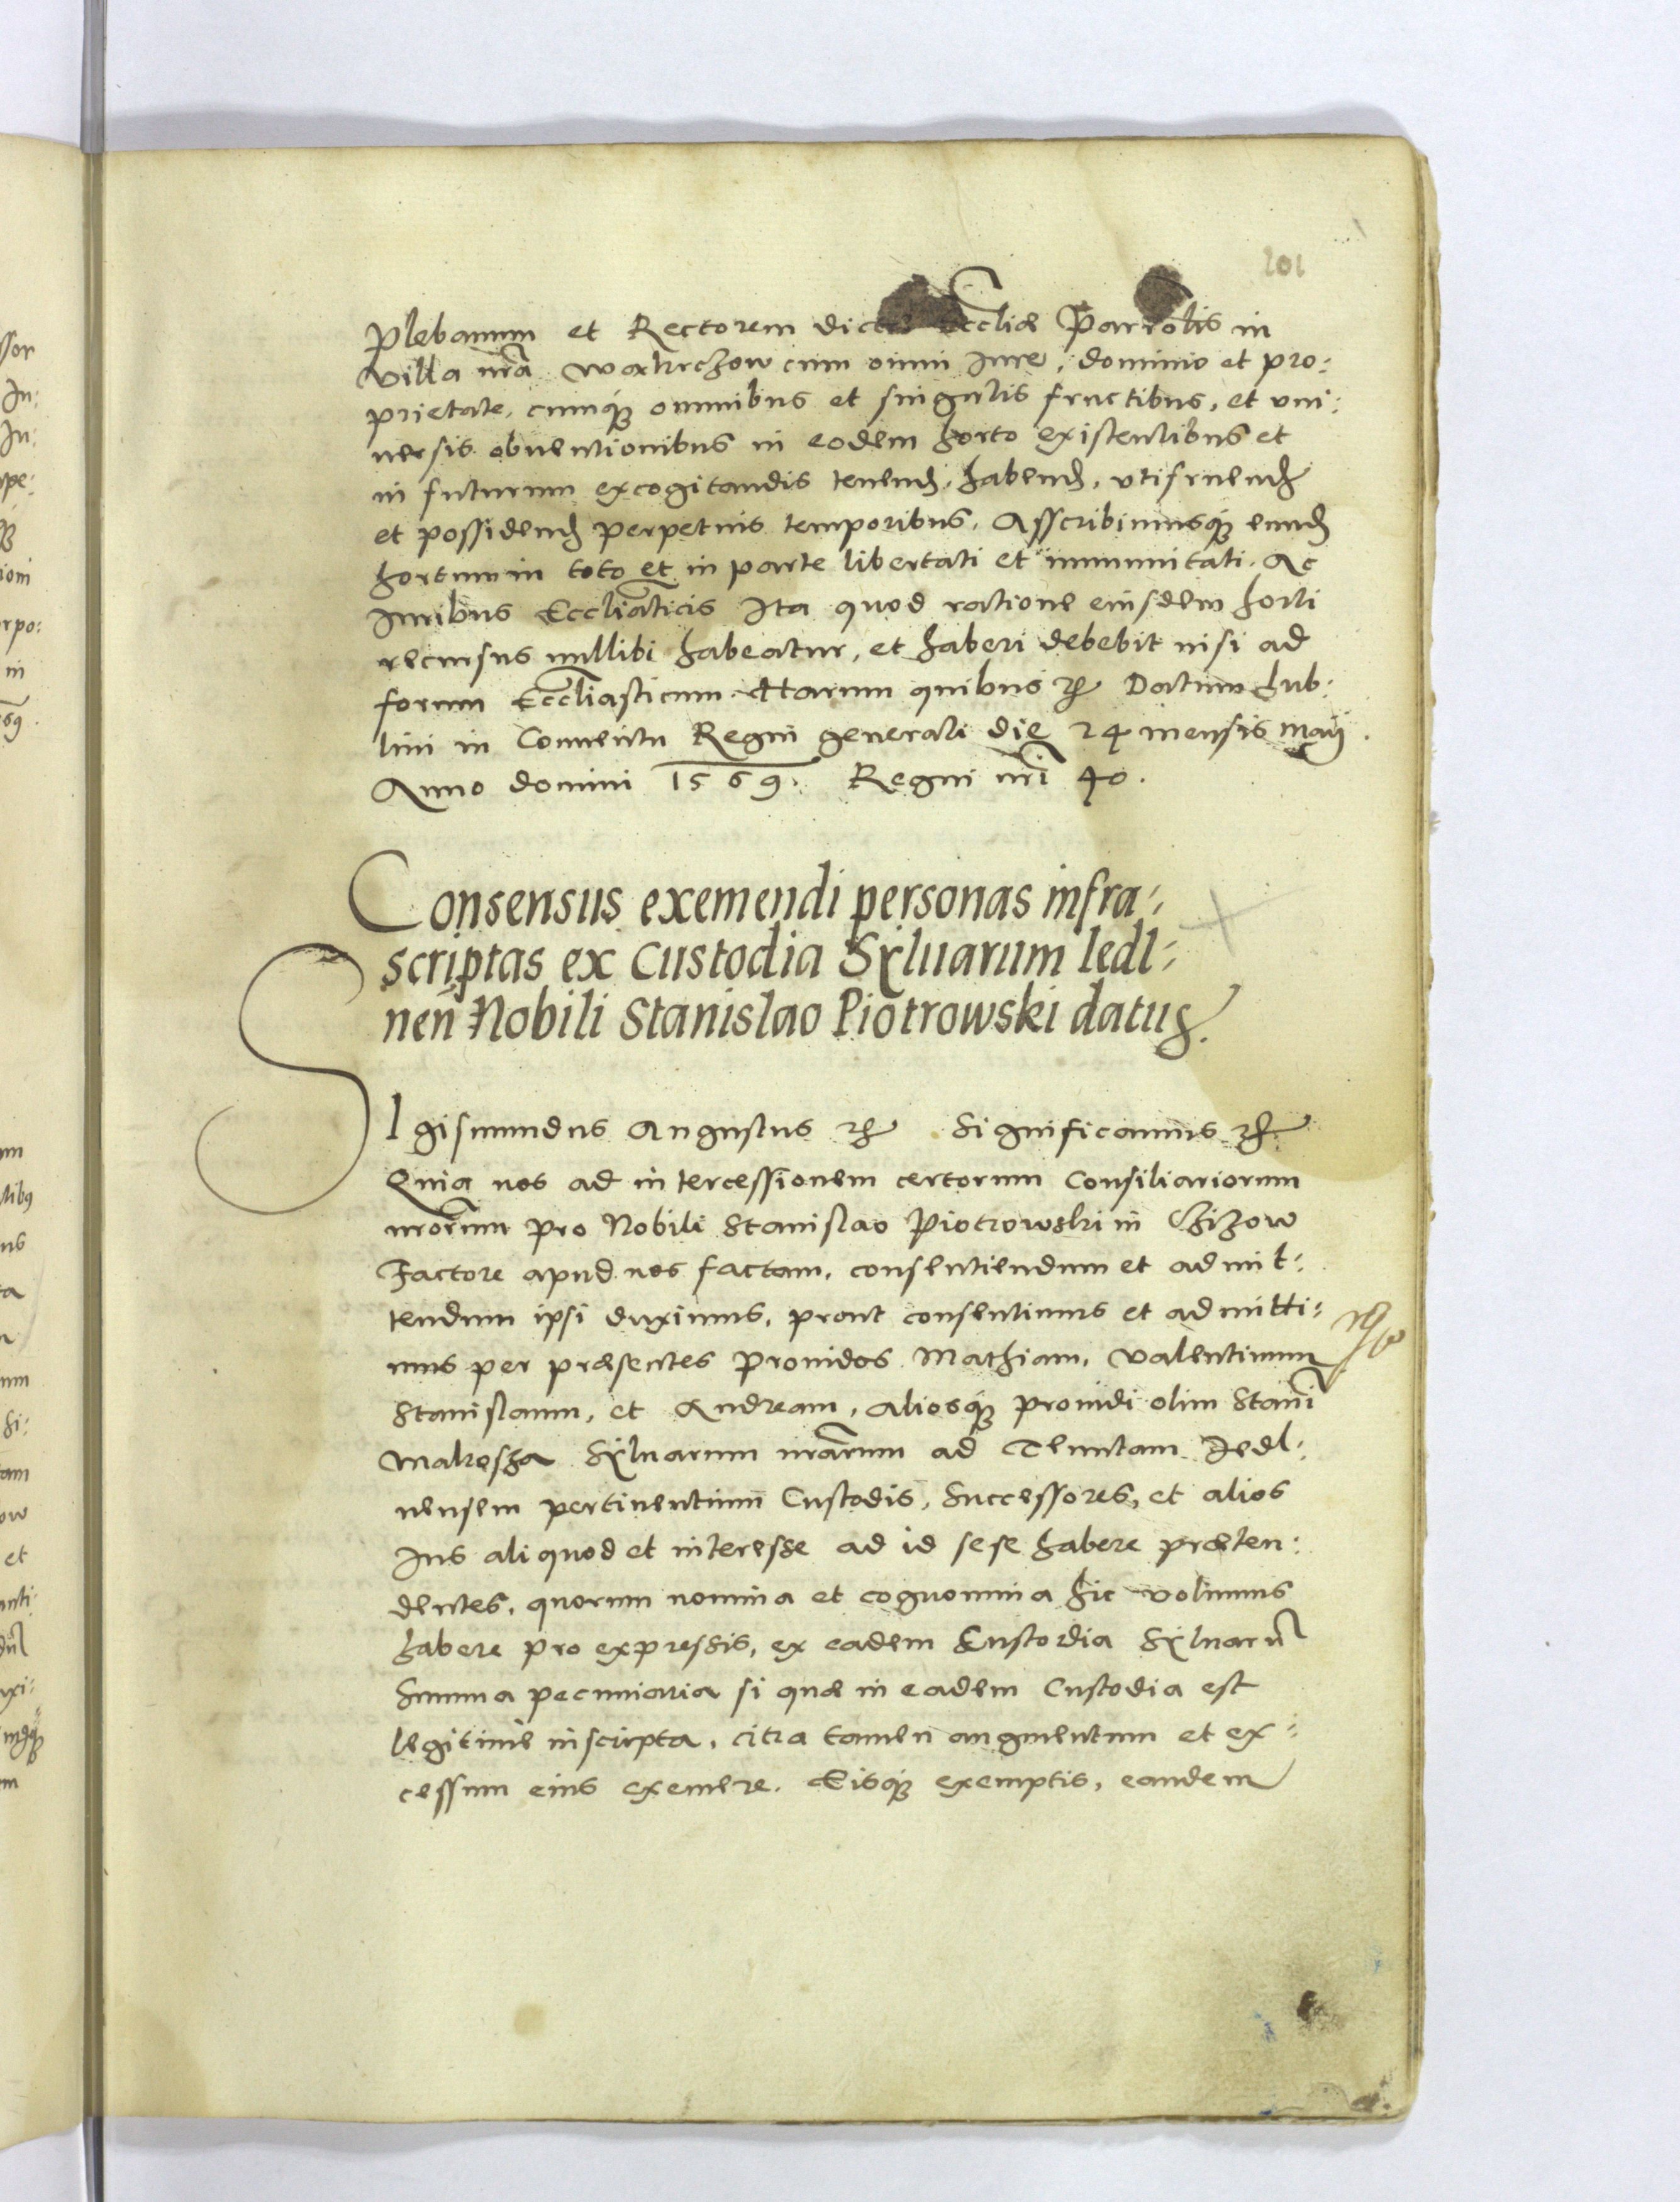 201
Plebanum et Rectorem dictæ Eccliæ Parrolis in
villa nrã Wachczow cum omni Iure, dominio et pro:
prietate, cumq́ꝫ omnibus et singulis fructibus, et vni:
uersis obuentionibus in eodem horto existentibus et
in futurum excogitandis tenend, habend, vtifruend
et possidend perpetuis temporibus. Asscribimusq́ꝫ eund
hortum in toto et in parte libertati et immunitati. Ac
Iuribus Eccliãticis Ita quod ratione eiusdem horti
recursus nullibi habeatur, et haberi debebit nisi ad
forum Eccliasticum. Harum quibus ꝛc Datum Lub:
lini in Conuentu Regni generali die 24 mensis Maij.
Anno domini 1569. Regni nrĩ 40.
Consensus exemendi personas infra:
scriptas ex Custodia Syluarum Iedl:
nen̄ Nobili Stanislao Piotrowski datus.
SIgismundus Augustus ꝛc Significamus ꝛc
Quia nos ad intercessionem certorum Consiliariorum
nrorum pro Nobili Stanislao Piotrowski in
Factore apud nos factam, consentiendum et admit:
tendum ipsi duximus, prout consentimus et admitti:
mus per præsentes Prouidos Mathiam, Valentinum
Stanislaum, et Andream, aliosq́ꝫ prouidi olim Stani
Makosza Syluarum nrãrum ad Tenutam Iedl:
nensem pertinentium Custodis, Successores, et alios
Ius aliquod et interesse ad id sese habere præten:
dentes, quorum nomina et cognomina hic volumus
habere pro expressis, ex eadem Custodia Syluarũ
Summa pecuniaria si quæ in eadem Custodia est
legitime inscripta, citra tamen augmentum et ex:
cessum eius exemere. Eisq́ꝫ exemptis, eandem